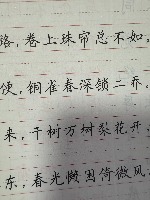 路，卷上珠帘总不如，
便，铜雀春深锁二乔。
来，千树万树梨花开，
东，春光懒困倚微风，